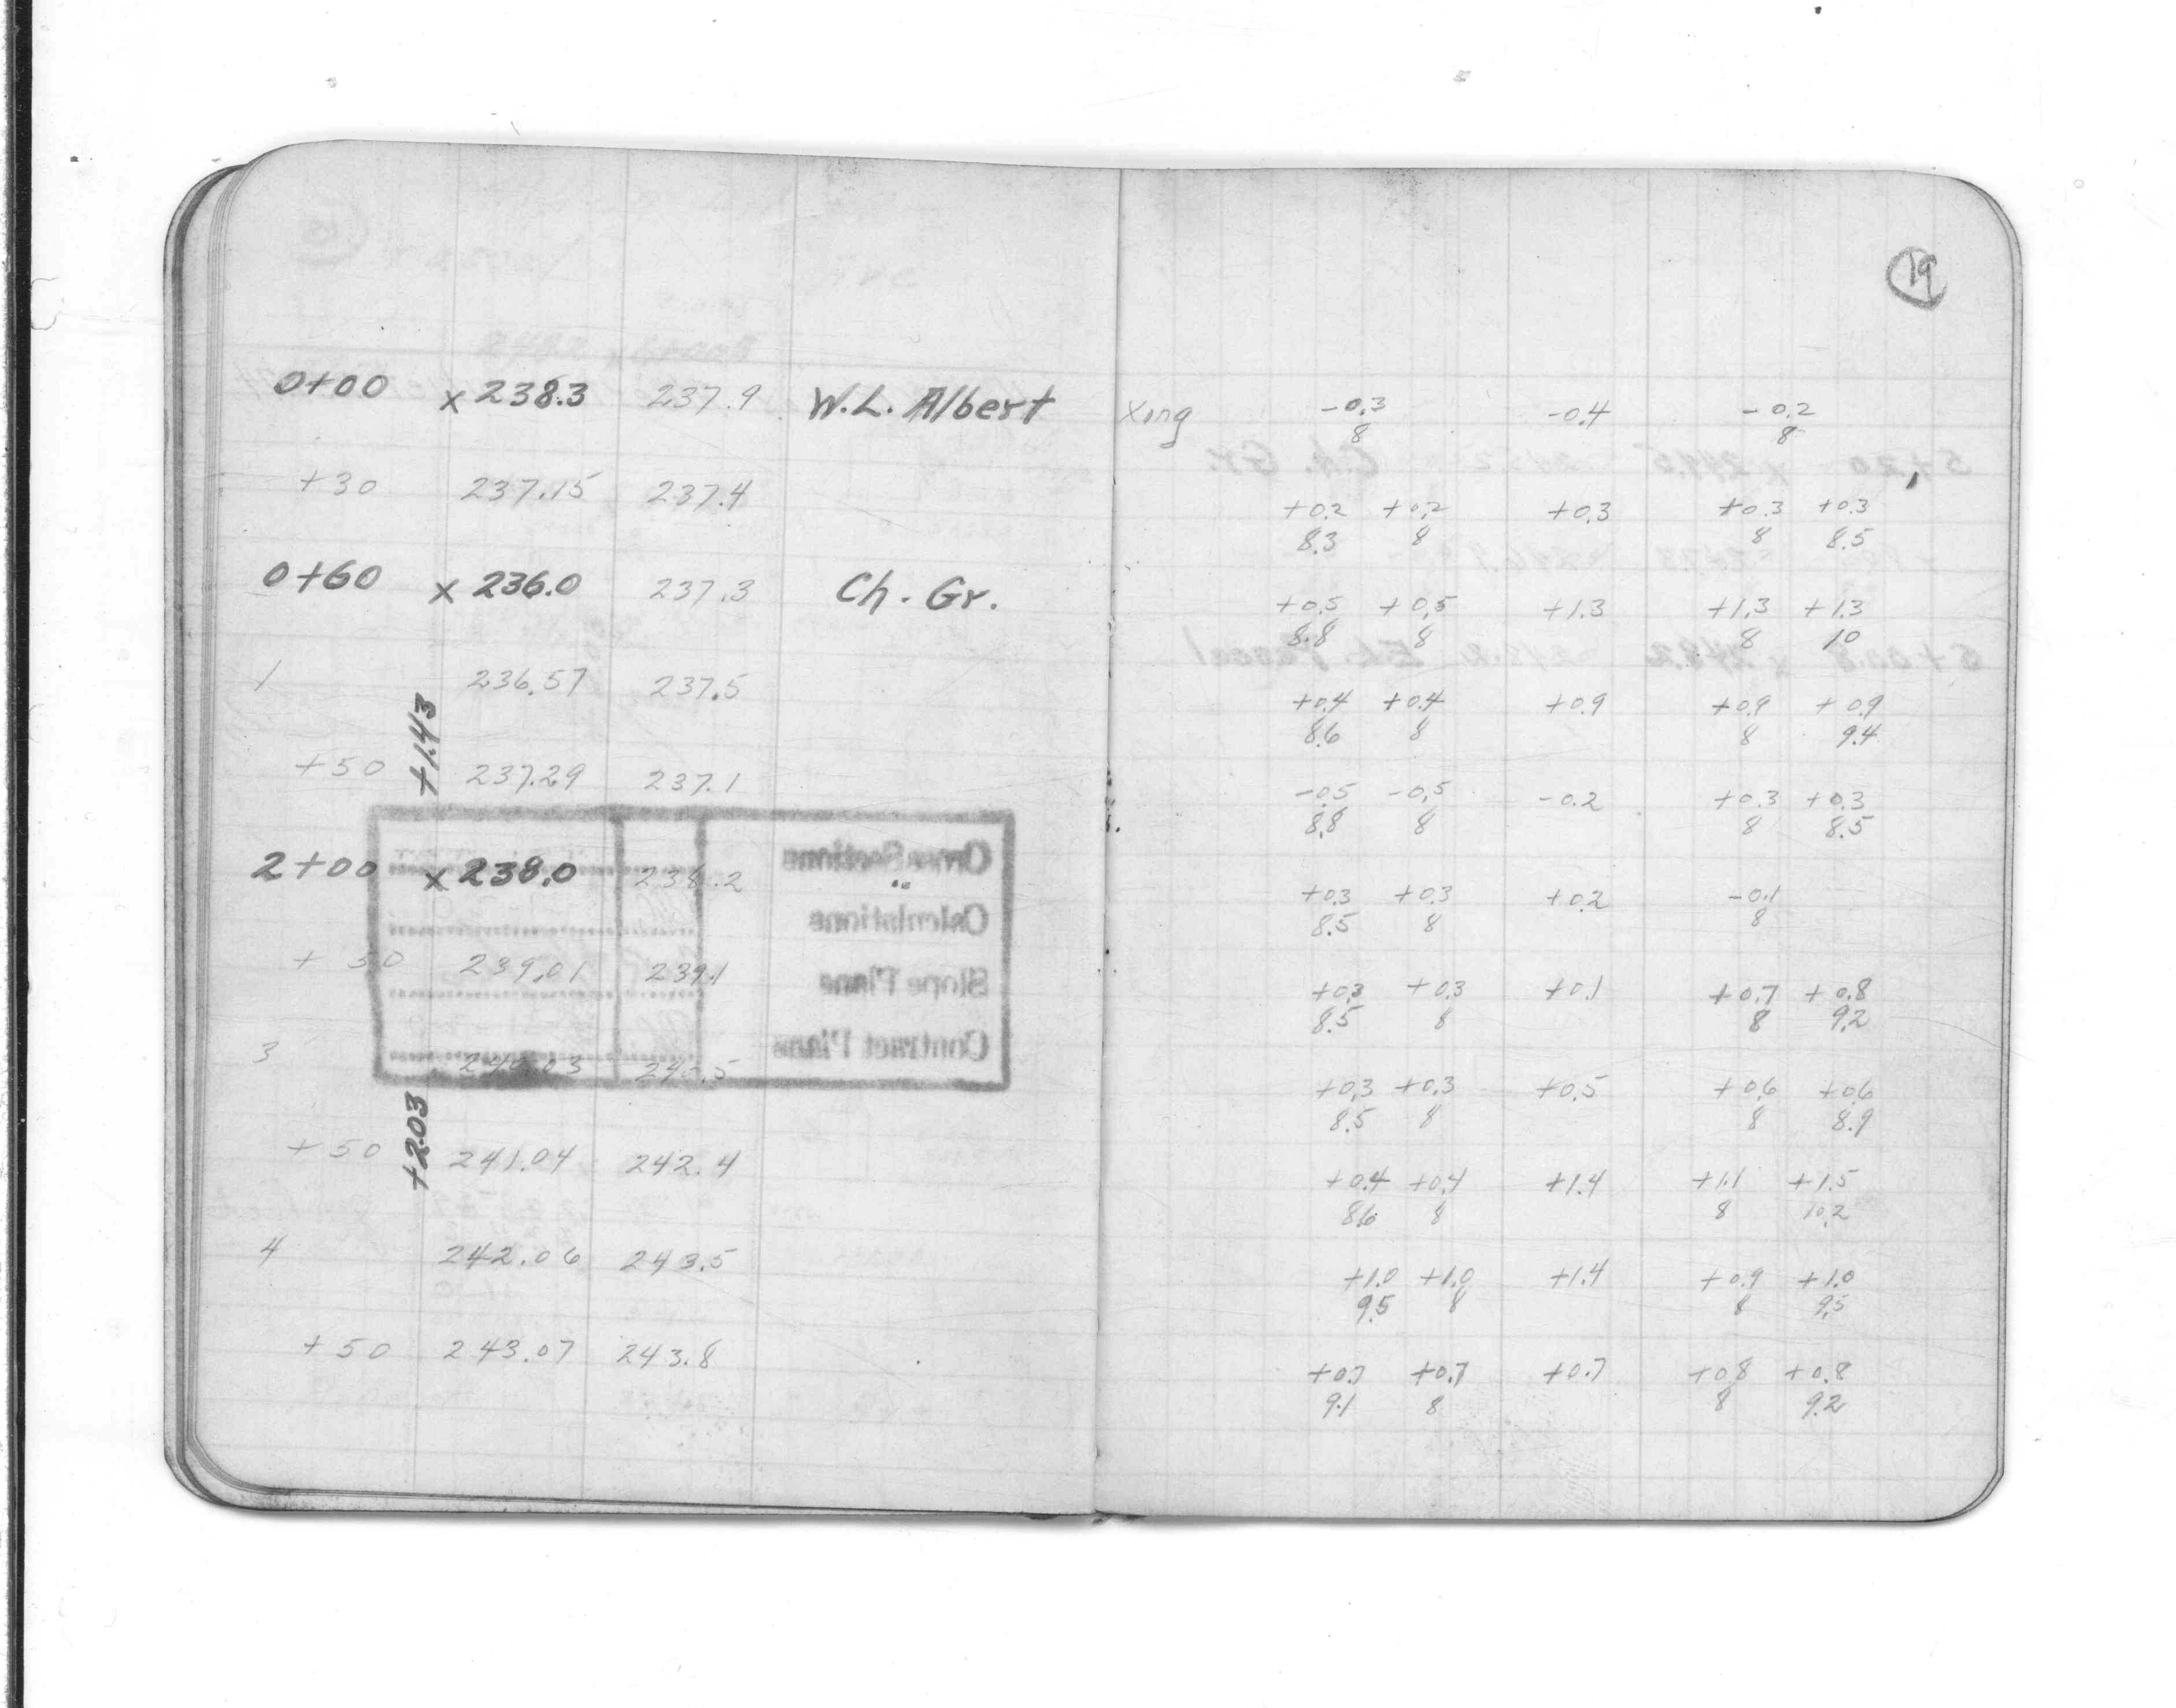 19
0+00 x 238.3 237.9 W.L. Albert Xing -0.3 -0.4 -0.2
8 8
+30 237.15 237.4 +0.2 +0.2 +0.3 +0.3 +0.3
8.3 8 8 8.5
0+60 x 236.0 237.3 Ch. Gr. +0.5 +0.5 +1.3 +1.3 +1.3
8.8 8 8 10
1 236.57 237.5 +0.4 +0.4 +0.9 +0.9 +0.9
8.6 8 8 9.4
+1.43
+50 237.29 237.1 -0.5 -0.5 -0.2 +0.3 +0.3
8.8 8 8 8.5
2+00 x 238.0 238.2 +0.3 +0.3 +0.2 -0.1
8.5 8 8
+50 239.01 239.1 +0.3 +0.3 +0.1 +0.7 +0.8
8.5 8 8 9.2
3 240.03 240.5 +0.3 +0.3 +0.5 +0.6 +0.6
8.5 8 8 8.9
+2.03
+50 241.04 242.4 +0.4 +0.4 +1.4 +1.1 +1.5
8.6 8 8 10.2
4 242.06 243.5 +1.0 +1.0 +1.4 +0.9 +1.0
9.5 8 8 9.5
+50 243.07 243.8 +0.7 +0.7 +0.7 +0.8 +0.8
9.1 8 8 9.2
Cross Sections
Calculations
Slope Plans
Contract Plans